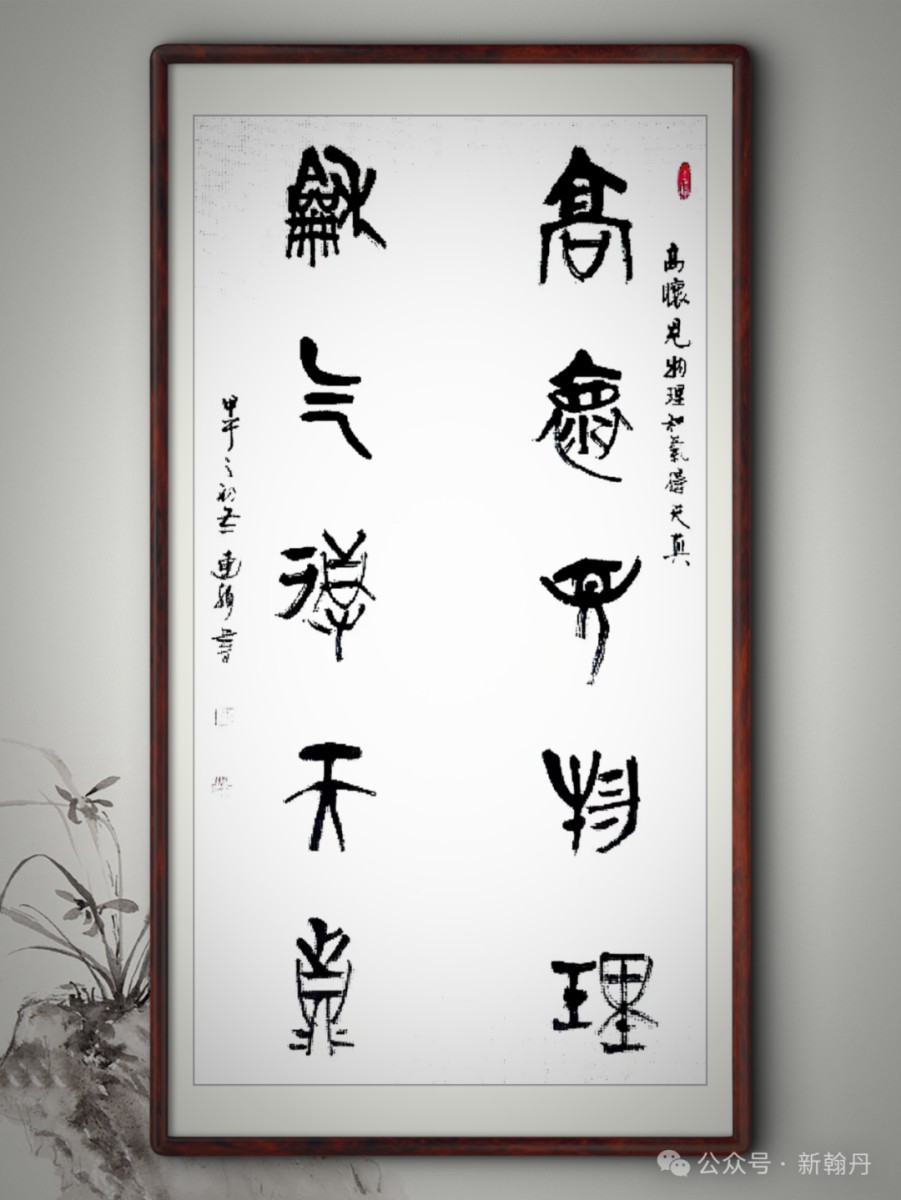 高懷見物理和氣得天真
高懷見物理
龢气得天真
甲午之初冬連書
公众号 · 新翰丹